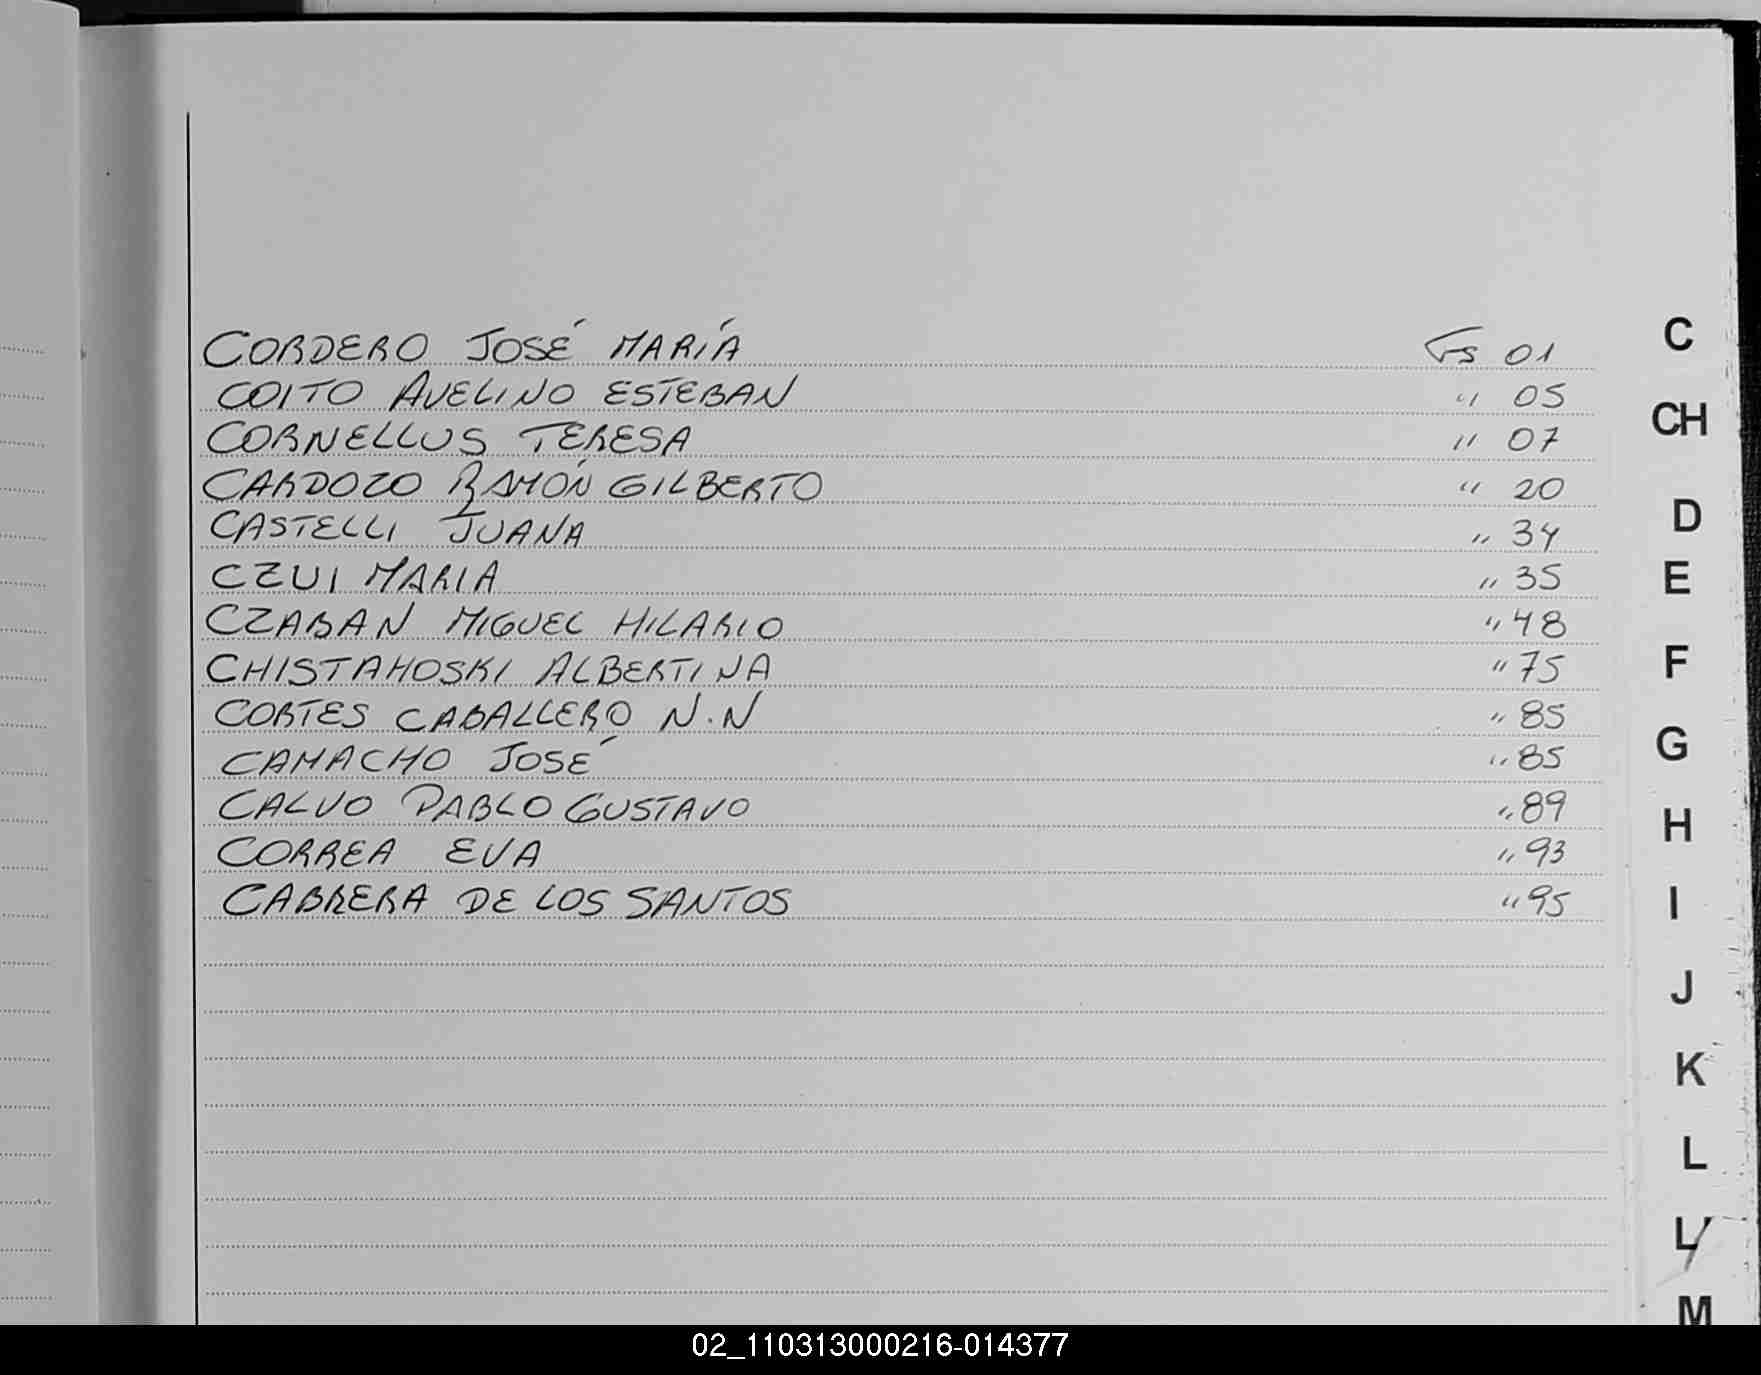 CORDERO JOSÉ MARÍA Fs 01
COITO AVELINO ESTEBAN " 05
CORNELLUS TERESA " 07
CARDOZO RAMÓN GILBERTO " 20
CASTELLI JUANA " 34
CZUI MARIA " 35
CZABAN MIGUEL HILARIO " 48
CHISTAHOSKI ALBERTINA " 75
CORTES CABALLERO N.N " 85
CAMACHO JOSÉ " 85
CALVO PABLO GUSTAVO " 89
CORREA EVA " 93
CABRERA DE LOS SANTOS " 95
C
CH
D
E
F
G
H
I
J
K
L
L
M
02_110313000216-014377